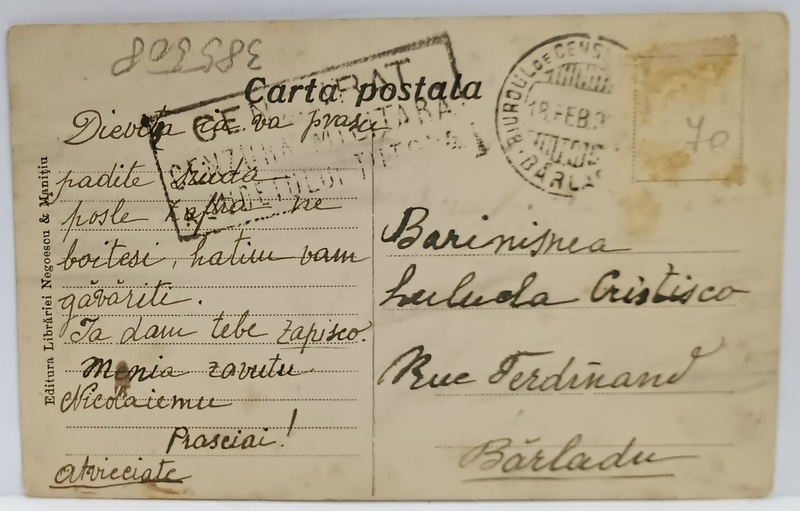 385308
Carta postala
CENZURAT
CENZURA MILITARA
BIUROUL DE CENS
18.FEB.
BÂRLA
70
Editura Librăriei Negoescu & Manițiu
Dievcta ia va prasu
padite siuda
posle zaftra ne
boitesi, hatiu vam
găvărite.
Ia dam tebe zapisco.
Menia zavutu
Nicolaiemu
Prasciai!
Atvieciate
Barinisnea
Luluda Cristisco
Rue Ferdinand
Bârladu